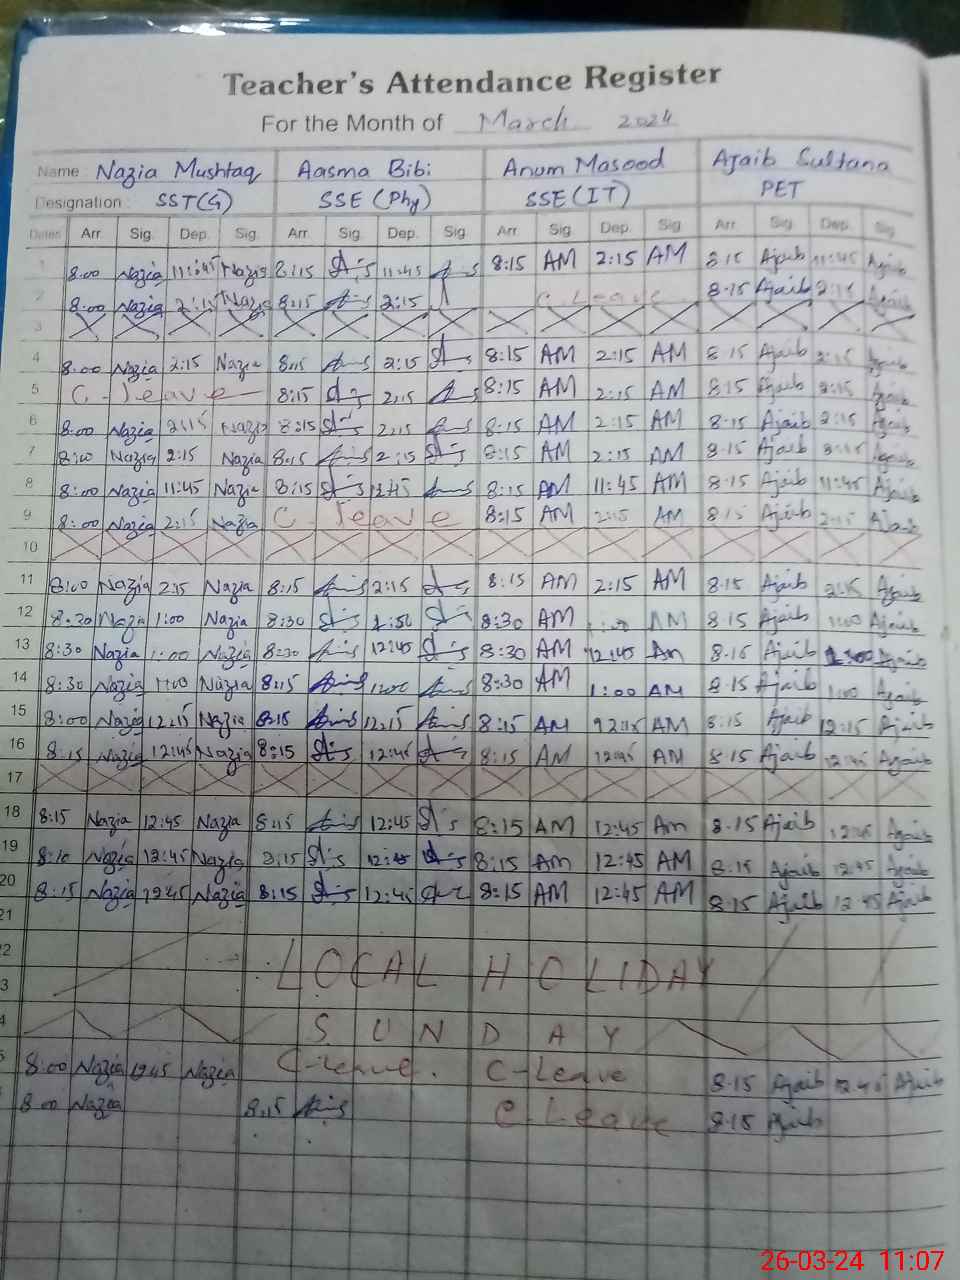 Teacher's Attendance Register
For the Month of March 2024
Name : Nazia Mushtaq Aasma Bibi Anum Masood Ajaib Sultana
Designation : SST(G) SSE (Phy) SSE (IT) PET
Dates Arr. Sig. Dep. Sig. Arr. Sig. Dep. Sig. Arr. Sig. Dep. Sig. Arr. Sig. Dep. Sig.
1 8:00 Nazia 11:45 Nazia 8:15 11:45 8:15 AM 2:15 AM 8:15 Ajaib 11:45 Ajaib
2 8:00 Nazia 2:15 Nazia 8:15 2:15 C. Leave 8:15 Ajaib 2:15 Ajaib
3
4 8:00 Nazia 2:15 Nazia 8:15 2:15 8:15 AM 2:15 AM 8:15 Ajaib 2:15 Ajaib
5 C-leave 8:15 2:15 8:15 AM 2:15 AM 8:15 Ajaib 2:15 Ajaib
6 8:00 Nazia 2:15 Nazia 8:15 2:15 8:15 AM 2:15 AM 8:15 Ajaib 2:15 Ajaib
7 8:00 Nazia 2:15 Nazia 8:15 2:15 8:15 AM 2:15 AM 8:15 Ajaib Ajaib
8 8:00 Nazia 11:45 Nazia 8:15 8:15 AM 11:45 AM 8:15 Ajaib 11:45 Ajaib
9 8:00 Nazia 2:15 Nazia C-leave 8:15 AM 2:15 AM 8:15 Ajaib 2:15 Ajaib
10
11 8:00 Nazia 2:15 Nazia 8:15 2:15 8:15 AM 2:15 AM 8:15 Ajaib 2:15 Ajaib
12 8:30 Nazia 1:00 Nazia 8:30 8:30 AM AM 8:15 Ajaib 1:00 Ajaib
13 8:30 Nazia 1:00 Nazia 8:30 12:45 8:30 AM 12:45 Am 8:15 Ajaib Ajaib
14 8:30 Nazia 1:00 Nazia 8:15 8:30 AM 1:00 AM 8:15 Ajaib 1:00 Ajaib
15 8:00 Nazia 12:15 Nazia 8:15 12:15 8:15 AM 12:15 AM 8:15 Ajaib 12:15 Ajaib
16 8:15 Nazia 12:45 Nazia 8:15 12:45 8:15 AM 12:45 AM 8:15 Ajaib 12:45 Ajaib
17
18 8:15 Nazia 12:45 Nazia 8:15 12:45 8:15 AM 12:45 Am 8:15 Ajaib 12:45 Ajaib
19 8:10 Nazia 12:45 Nazia 8:15 12:45 8:15 Am 12:45 AM 8:15 Ajaib 12:45 Ajaib
20 8:15 Nazia 12:45 Nazia 8:15 12:45 8:15 AM 12:45 AM 8:15 Ajaib 12:45 Ajaib
21
2 LOCAL HOLIDAY
3
4 SUNDAY
5 8:00 Nazia 12:45 Nazia C-leave. C-Leave 8:15 Ajaib 12:45 Ajaib
8:00 Nazia 8:15 C-Leave 8:15 Ajaib
26-03-24 11:07